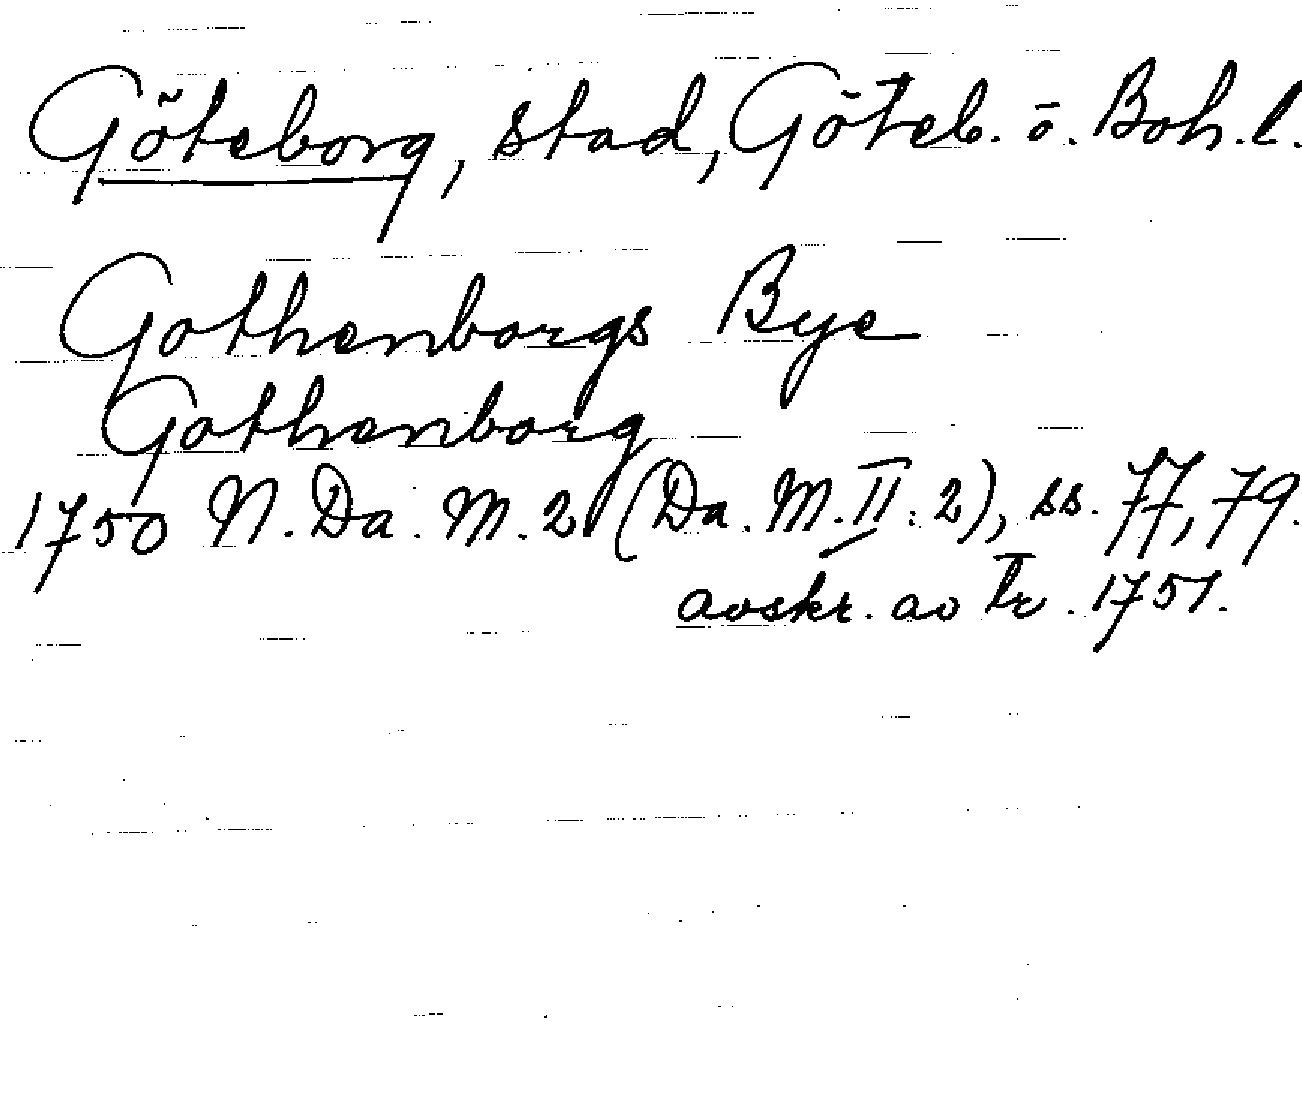 Göteborg, stad, Göteb. o. Boh. l.
Gothenborgs Bye
Gothenborg
1750 N. Da. M. 2 (Da. M. II: 2), ss. 77, 79.
avskr. av tr. 1751.